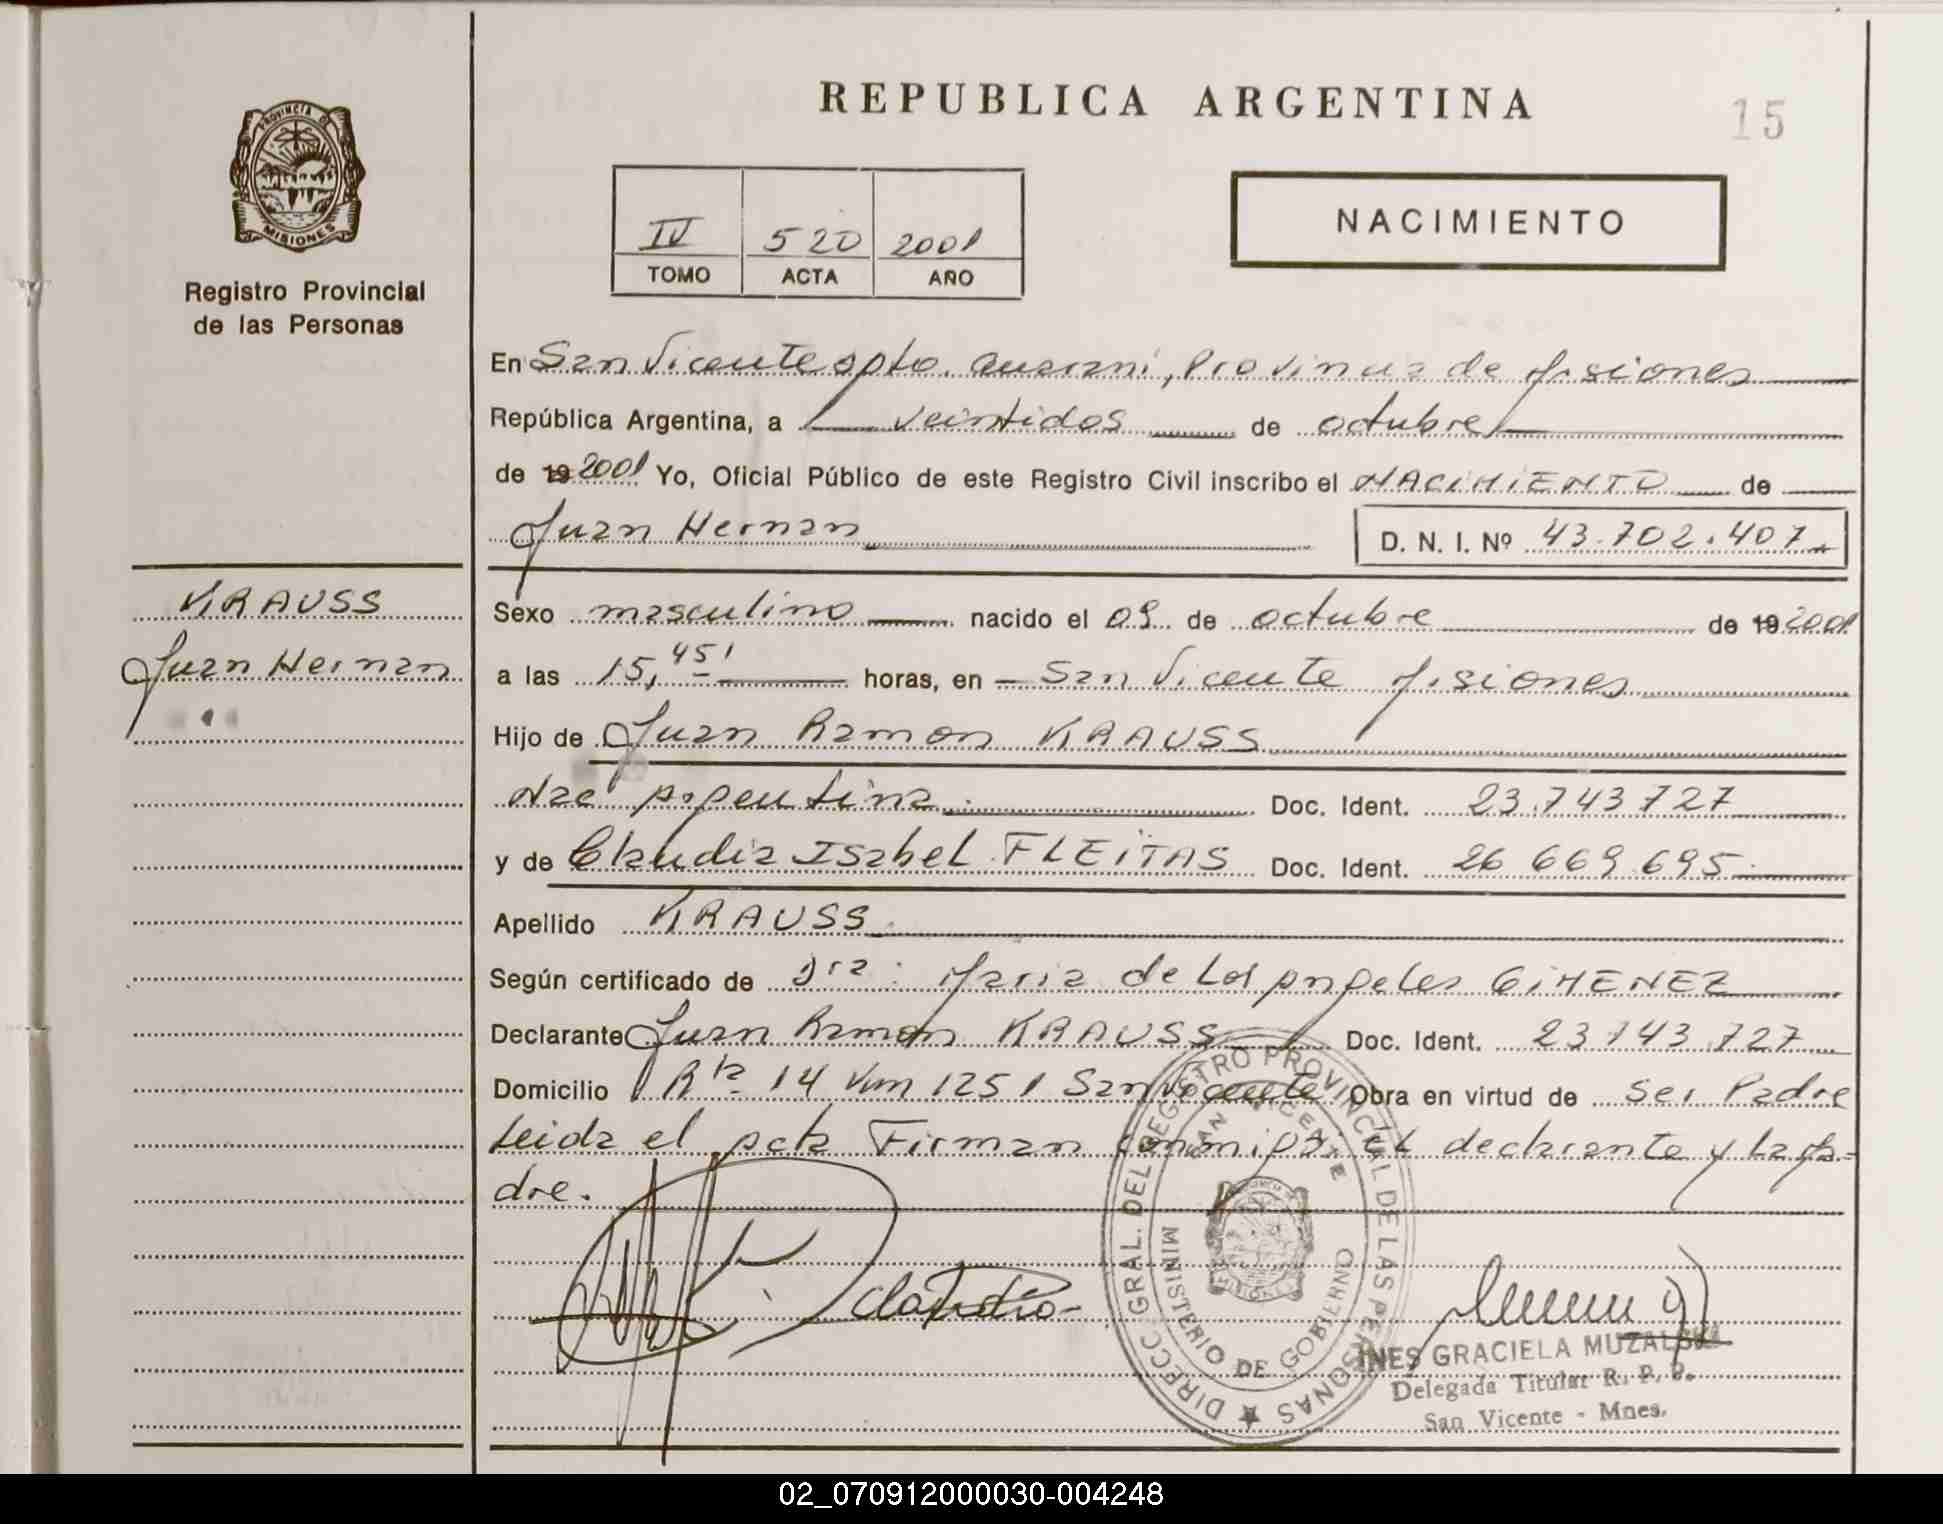 REPUBLICA ARGENTINA
15
PROVINCIA DE
MISIONES
Registro Provincial
de las Personas
IV 520 2001
TOMO ACTA AÑO
NACIMIENTO
En San Vicente Dpto. Guarani, Provincia de Misiones
República Argentina, a veintidos de octubre
de 19 2001 Yo, Oficial Público de este Registro Civil inscribo el NACIMIENTO de
Juan Hernan D. N. I. Nº 43.702.407
KRAUSS
Juan Hernan
Sexo masculino nacido el 09 de octubre de 19 2001
a las 15,45' horas, en San Vicente Misiones
Hijo de Juan Ramon KRAUSS
Nac Argentina Doc. Ident. 23.743 727
y de Claudia Isabel FLEITAS Doc. Ident. 26 669 695
Apellido KRAUSS
Según certificado de Dra: Maria de Los Angeles GIMENEZ
Declarante Juan Ramon KRAUSS Doc. Ident. 23 743 727
Domicilio Rta 14 Km 1251 San Vicente Obra en virtud de ser Padre
Leida el acta Firman conmigo: el declarante y la Ma-
dre.
Claudia
DIRECC. GRAL. DEL REGISTRO PROVINCIAL DE LAS PERSONAS
SAN VICENTE
MINISTERIO DE GOBIERNO
INES GRACIELA
Delegada Titular R. P. P.
San Vicente - Mnes.
02_070912000030-004248